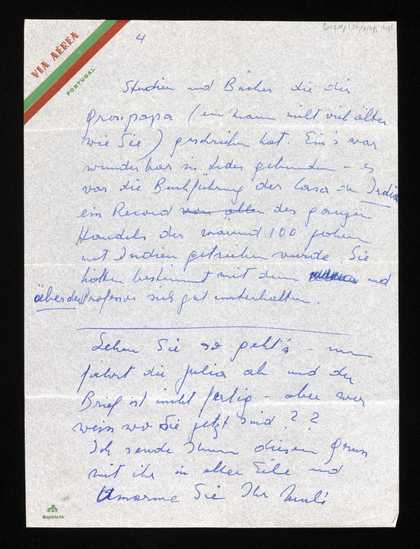 VIA AÉREA
PORTUGAL
4
Studien und Bücher die der
Grosspapa (ein Mann nicht viel älter
wie Sie) geschrieben hat. Ein's war
wunderbar in Leder gebunden – es
war die Buchführung der Casa da India
ein Record von allen des ganzen
Handels der während 100 Jahren
mit Indien getrieben wurde. Sie
hätten bestimmt mit dem und
über den Professor sich gut unterhalten.
Sehen Sie so geht's – nun
fährt die Julia ab und der
Brief ist nicht fertig – aber wer
weiss wo Sie jetzt sind??
Ich sende Ihnen diesen Gruss
mit ihr in aller Eile und
Umarme Sie Ihr